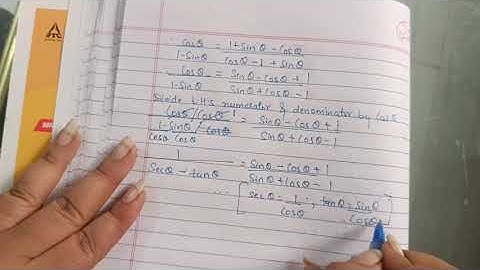 ∴ Cosθ/1-Sinθ = 1+Sinθ-Cosθ/Cosθ-1+Sinθ
Cosθ/1-Sinθ = Sinθ-Cosθ+1/Sinθ+Cosθ-1
Divide LHS numerator & denominator by Cosθ
Cosθ/Cosθ / 1/Cosθ - Sinθ/Cosθ = Sinθ-Cosθ+1/Sinθ+Cosθ-1
1/Secθ-tanθ = Sinθ-Cosθ+1/Sinθ+Cosθ-1
[Secθ = 1/Cosθ, tanθ = Sinθ/Cosθ]